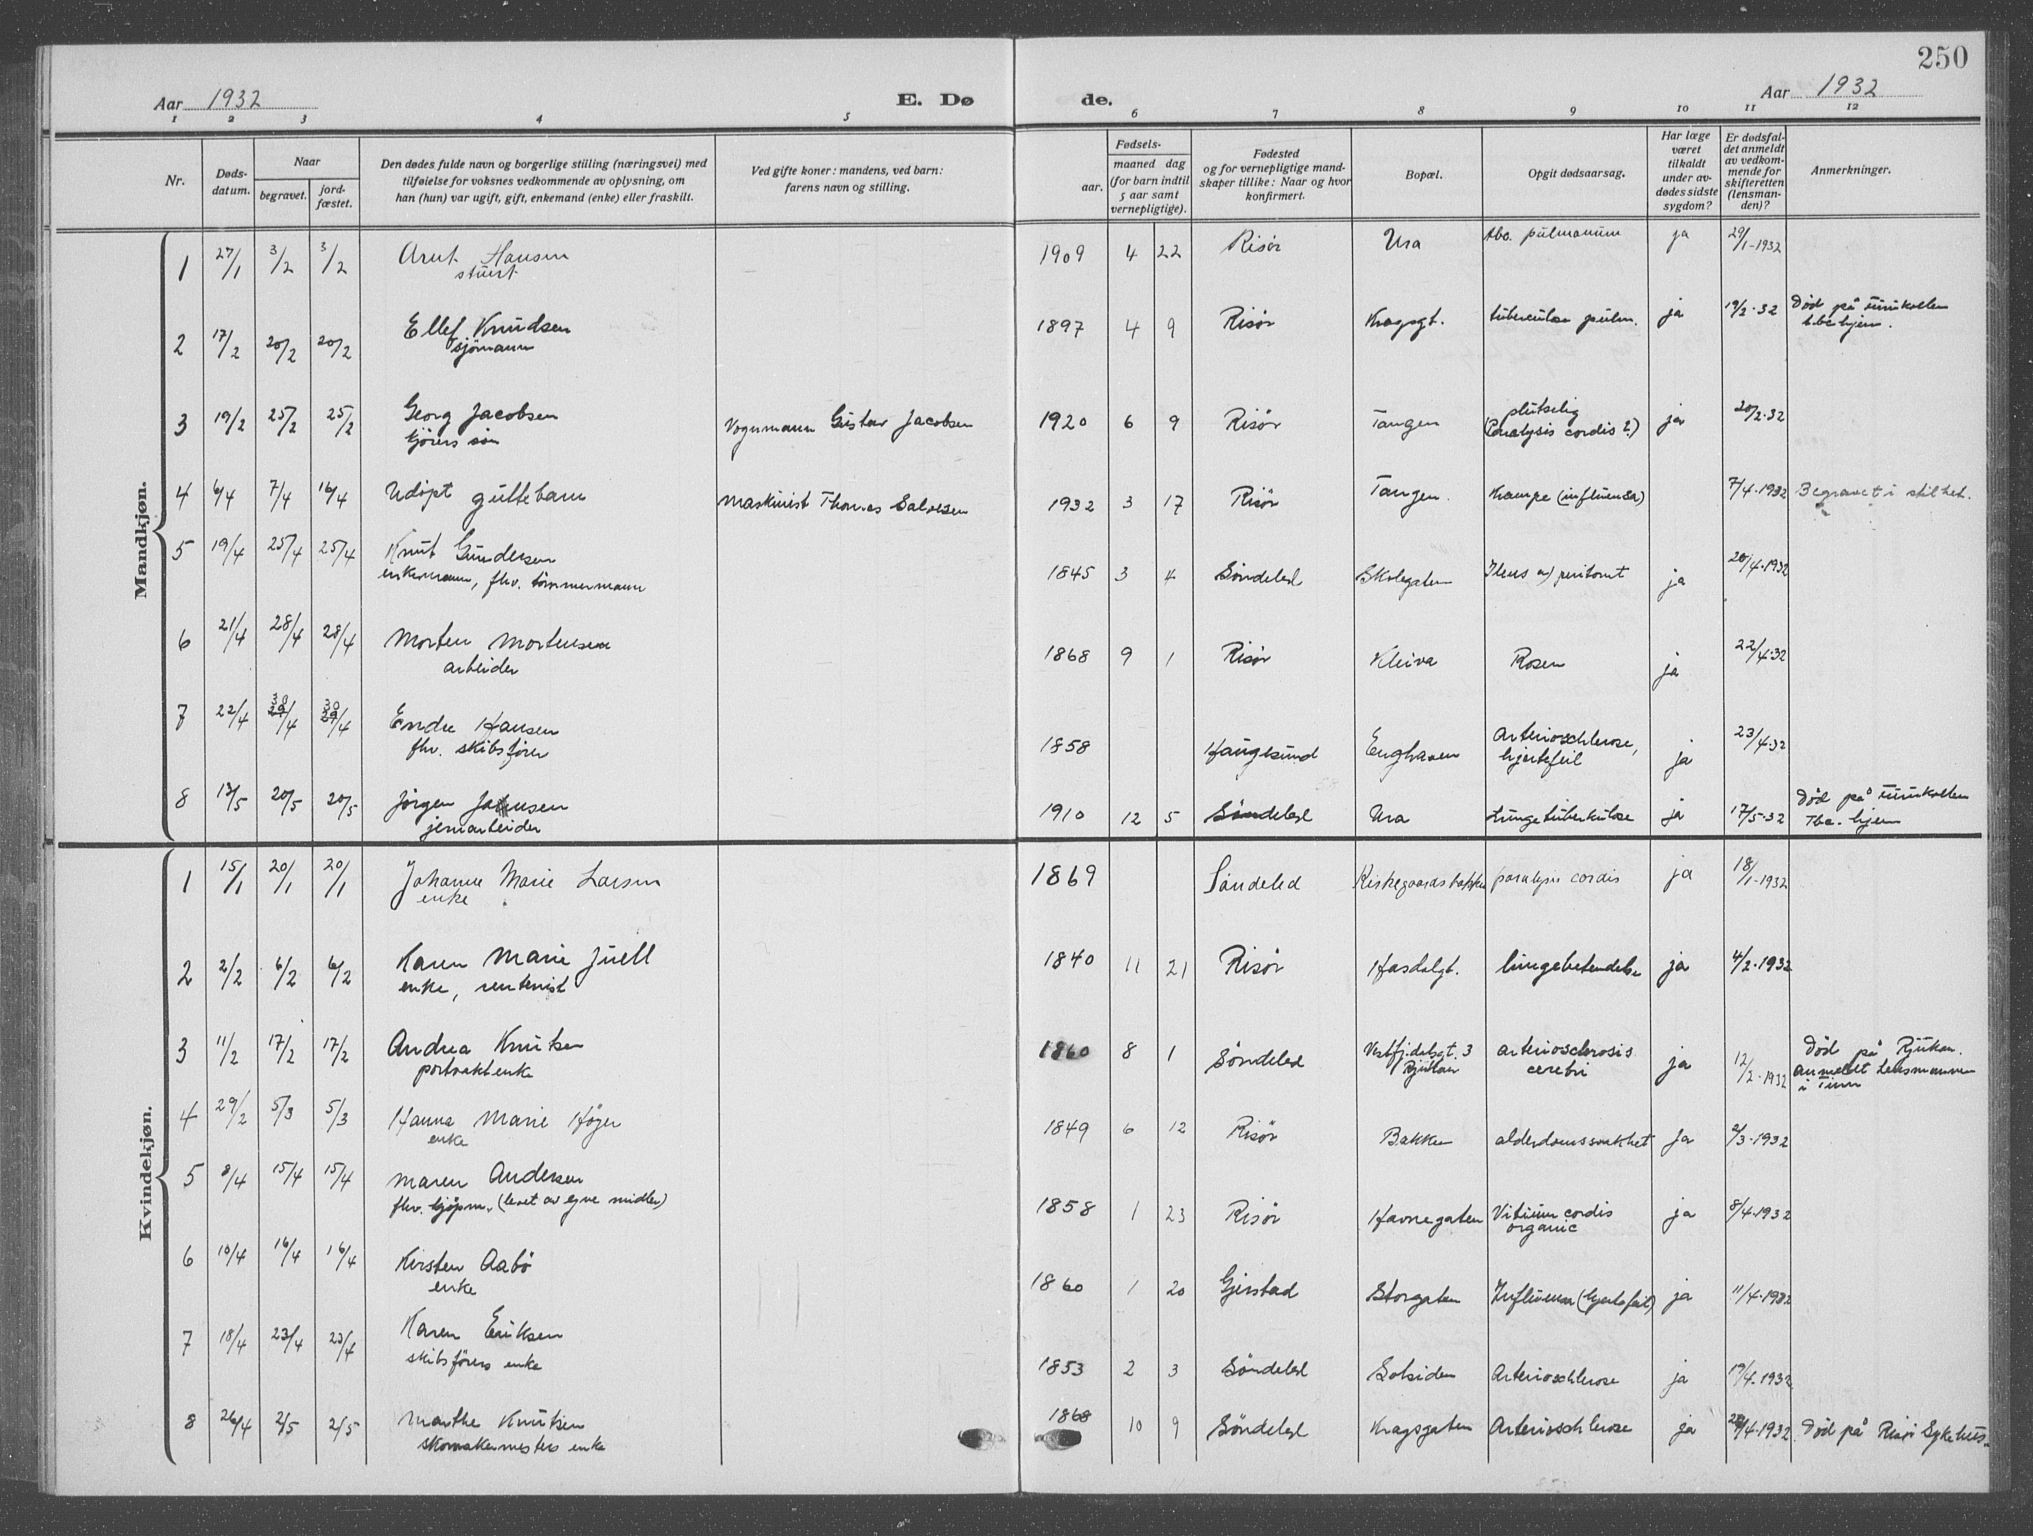 250
Aar 1932
E. Dø
de.
Aar 1932
1 2 3 4 5 6 7 8 9 10 11 12
Nr.
Døds-
datum.
Naar
begravet.
jord-
fæstet.
Den dødes fulde navn og borgerlige stilling (næringsvei) med
tilføielse for voksnes vedkommende av oplysning, om
han (hun) var ugift, gift, enkemand (enke) eller fraskilt.
Ved gifte koner: mandens, ved barn:
farens navn og stilling.
Fødsels-
aar.
maaned dag
(for barn indtil
5 aar samt
vernepligtige).
Fødested
og for vernepligtige mand-
skaper tillike: Naar og hvor
konfirmert.
Bopæl.
Opgit dødsaarsag.
Har læge
været
tilkaldt
under av-
dødes sidste
sygdom?
Er dødsfal-
det anmeldt
av vedkom-
mende for
skifteretten
(lensman-
den)?
Anmerkninger.
Mandkjøn.
1 27/1 3/2 3/2 Arnt Hansen 1909 4 22 Risør Ura tbc. pulmonum ja 29/1-1932
stuert
2 17/2 20/2 20/2 Ellef Knudsen 1897 4 9 Risør Kragsgt. tuberculose pulm. ja 19/2-32 Død på
sjømann tbc hjem.
3 19/2 25/2 25/2 Georg Jacobsen Vognmann Gustav Jacobsen 1920 6 9 Risør Tangen plutselig ja 20/2-32
kjørers søn (Paralysis cordis?)
4 6/4 7/4 16/4 Udøpt guttebarn Maskinist Thomas Salvesen 1932 3 17 Risør Tangen. Krampe (influensa) 7/4-1932 Begravet i stilhet.
5 19/4 25/4 25/4 Knut Gundersen 1845 3 4 Søndeled Skolegaten Ileus m/ peritonit ja 20/4-1932
enkemann, fhv. tømmermann
6 21/4 28/4 28/4 Morten Mortensen 1868 9 1 Risør Kleiva Rosen ja 22/4-32
arbeider
7 22/4 30/4 30/4 Endre Hansen 1858 Haugesund Enghaven Arterioschlerose, ja 23/4-32
fhv. skibsfører hjertefeil
8 13/5 20/5 20/5 Jørgen 1910 12 5 Søndeled Ura Lungetuberkulose ja 17/5-32 Død på
jernarbeider Tbc. hjem
Kvindekjøn.
1 15/1 20/1 20/1 Johanne Marie Larsen 1869 Søndeled Kirkegaardsbakken paralysis cordis ja 18/1-1932
enke
2 2/2 6/2 6/2 Karen Marie Juell 1840 11 21 Risør Hasdalgt. lungebetendelse ja 4/2-1932
enke, rentenist
3 11/2 17/2 17/2 Andrea Knutsen 1860 8 1 Søndeled Vestfjdalsgt. 3 arteriosclerosis ja 12/2-1932 Død på Rjukan.
enke Rjukan cerebri anmeldt Lensmannen
i Tinn
4 29/2 5/3 5/3 Hanna Marie Høyer 1849 6 12 Risør Bakken alderdomssvakhet ja 2/3-1932
enke
5 8/4 15/4 15/4 Maren Andersen 1858 1 23 Risør Havnegaten Vitium cordis ja 8/4-1932
fhv. kjøpm. (levet av egne midler) organic
6 10/4 16/4 16/4 Kirsten Aabø 1860 1 20 Gjerstad Storgaten Influensa (hjertefeil) ja 11/4-1932
enke
7 18/4 23/4 23/4 Karen Eriksen 1853 2 3 Søndeled Solsiden Arterioschlerose ja 19/4-1932
skibsførers enke
8 26/4 2/5 2/5 Marthe Knutsen 1868 10 9 Søndeled Kragsgaten Arterioschlerose ja 28/4-1932 Død på Risør Sykehus.
skomakermesters enke